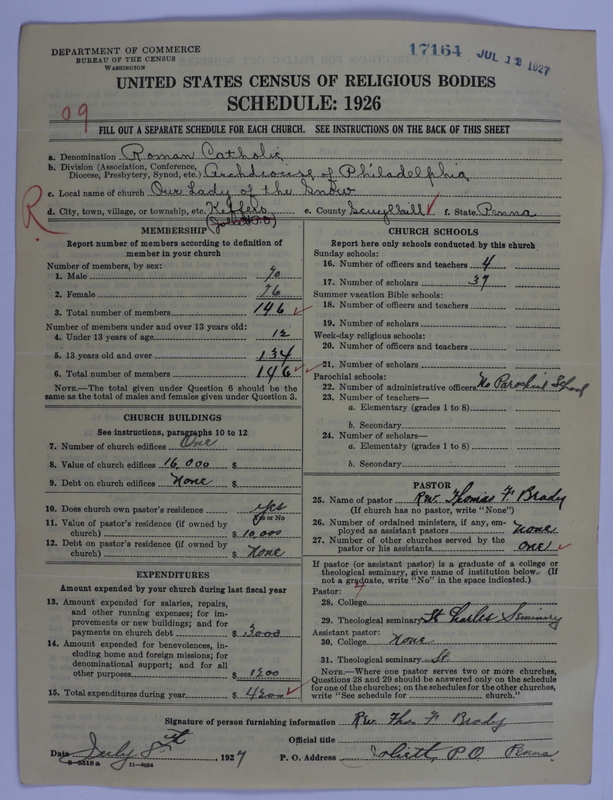 DEPARTMENT OF COMMERCE
BUREAU OF THE CENSUS
WASHINGTON
17164 JUL 12 1927
UNITED STATES CENSUS OF RELIGIOUS BODIES
SCHEDULE: 1926
09
FILL OUT A SEPARATE SCHEDULE FOR EACH CHURCH. SEE INSTRUCTIONS ON THE BACK OF THIS SHEET
a. Denomination Roman Catholic
b. Division (Association, Conference, Diocese, Presbytery, Synod, etc.) Archdiocese of Philadelphia
c. Local name of church Our Lady of the Snow
R
d. City, town, village, or township, etc. Keffers e. County Scuylkill f. State Penna
MEMBERSHIP
Report number of members according to definition of
member in your church
Number of members, by sex:
1. Male 70
2. Female 76
3. Total number of members 146
Number of members under and over 13 years old:
4. Under 13 years of age 12
5. 13 years old and over 134
6. Total number of members 146
NOTE.—The total given under Question 6 should be the
same as the total of males and females given under Question 3.
CHURCH BUILDINGS
See instructions, paragraphs 10 to 12
7. Number of church edifices One
8. Value of church edifices 16,000 $
9. Debt on church edifices None $
10. Does church own pastor's residence yes
Yes or No
11. Value of pastor's residence (if owned by
church) $ 10,000
12. Debt on pastor's residence (if owned by
church) $ None
EXPENDITURES
Amount expended by your church during last fiscal year
13. Amount expended for salaries, repairs,
and other running expenses; for im-
provements or new buildings; and for
payments on church debt $ 3000
14. Amount expended for benevolences, in-
cluding home and foreign missions; for
denominational support; and for all
other purposes $ 1200
15. Total expenditures during year $ 4200
CHURCH SCHOOLS
Report here only schools conducted by this church
Sunday schools:
16. Number of officers and teachers 4
17. Number of scholars 37
Summer vacation Bible schools:
18. Number of officers and teachers
19. Number of scholars
Week-day religious schools:
20. Number of officers and teachers
21. Number of scholars
Parochial schools:
22. Number of administrative officers No Parochial School
23. Number of teachers—
a. Elementary (grades 1 to 8)
b. Secondary
24. Number of scholars—
a. Elementary (grades 1 to 8)
b. Secondary
PASTOR
25. Name of pastor Rev. Thomas F. Brady
(If church has no pastor, write "None")
26. Number of ordained ministers, if any, em-
ployed as assistant pastors none
27. Number of other churches served by the
pastor or his assistants one
If pastor (or assistant pastor) is a graduate of a college or
theological seminary, give name of institution below. (If
not a graduate, write "No" in the space indicated.)
Pastor:
28. College
29. Theological seminary St Charles Seminary
Assistant pastor:
30. College none
31. Theological seminary St.
NOTE.—Where one pastor serves two or more churches,
Questions 28 and 29 should be answered only on the schedule
for one of the churches; on the schedules for the other churches,
write "See schedule for church."
Signature of person furnishing information Rev. Thos F. Brady
Official title
Date July 8st, 1927 P. O. Address Joliett P.O. Penna
8-5318a 11-9064